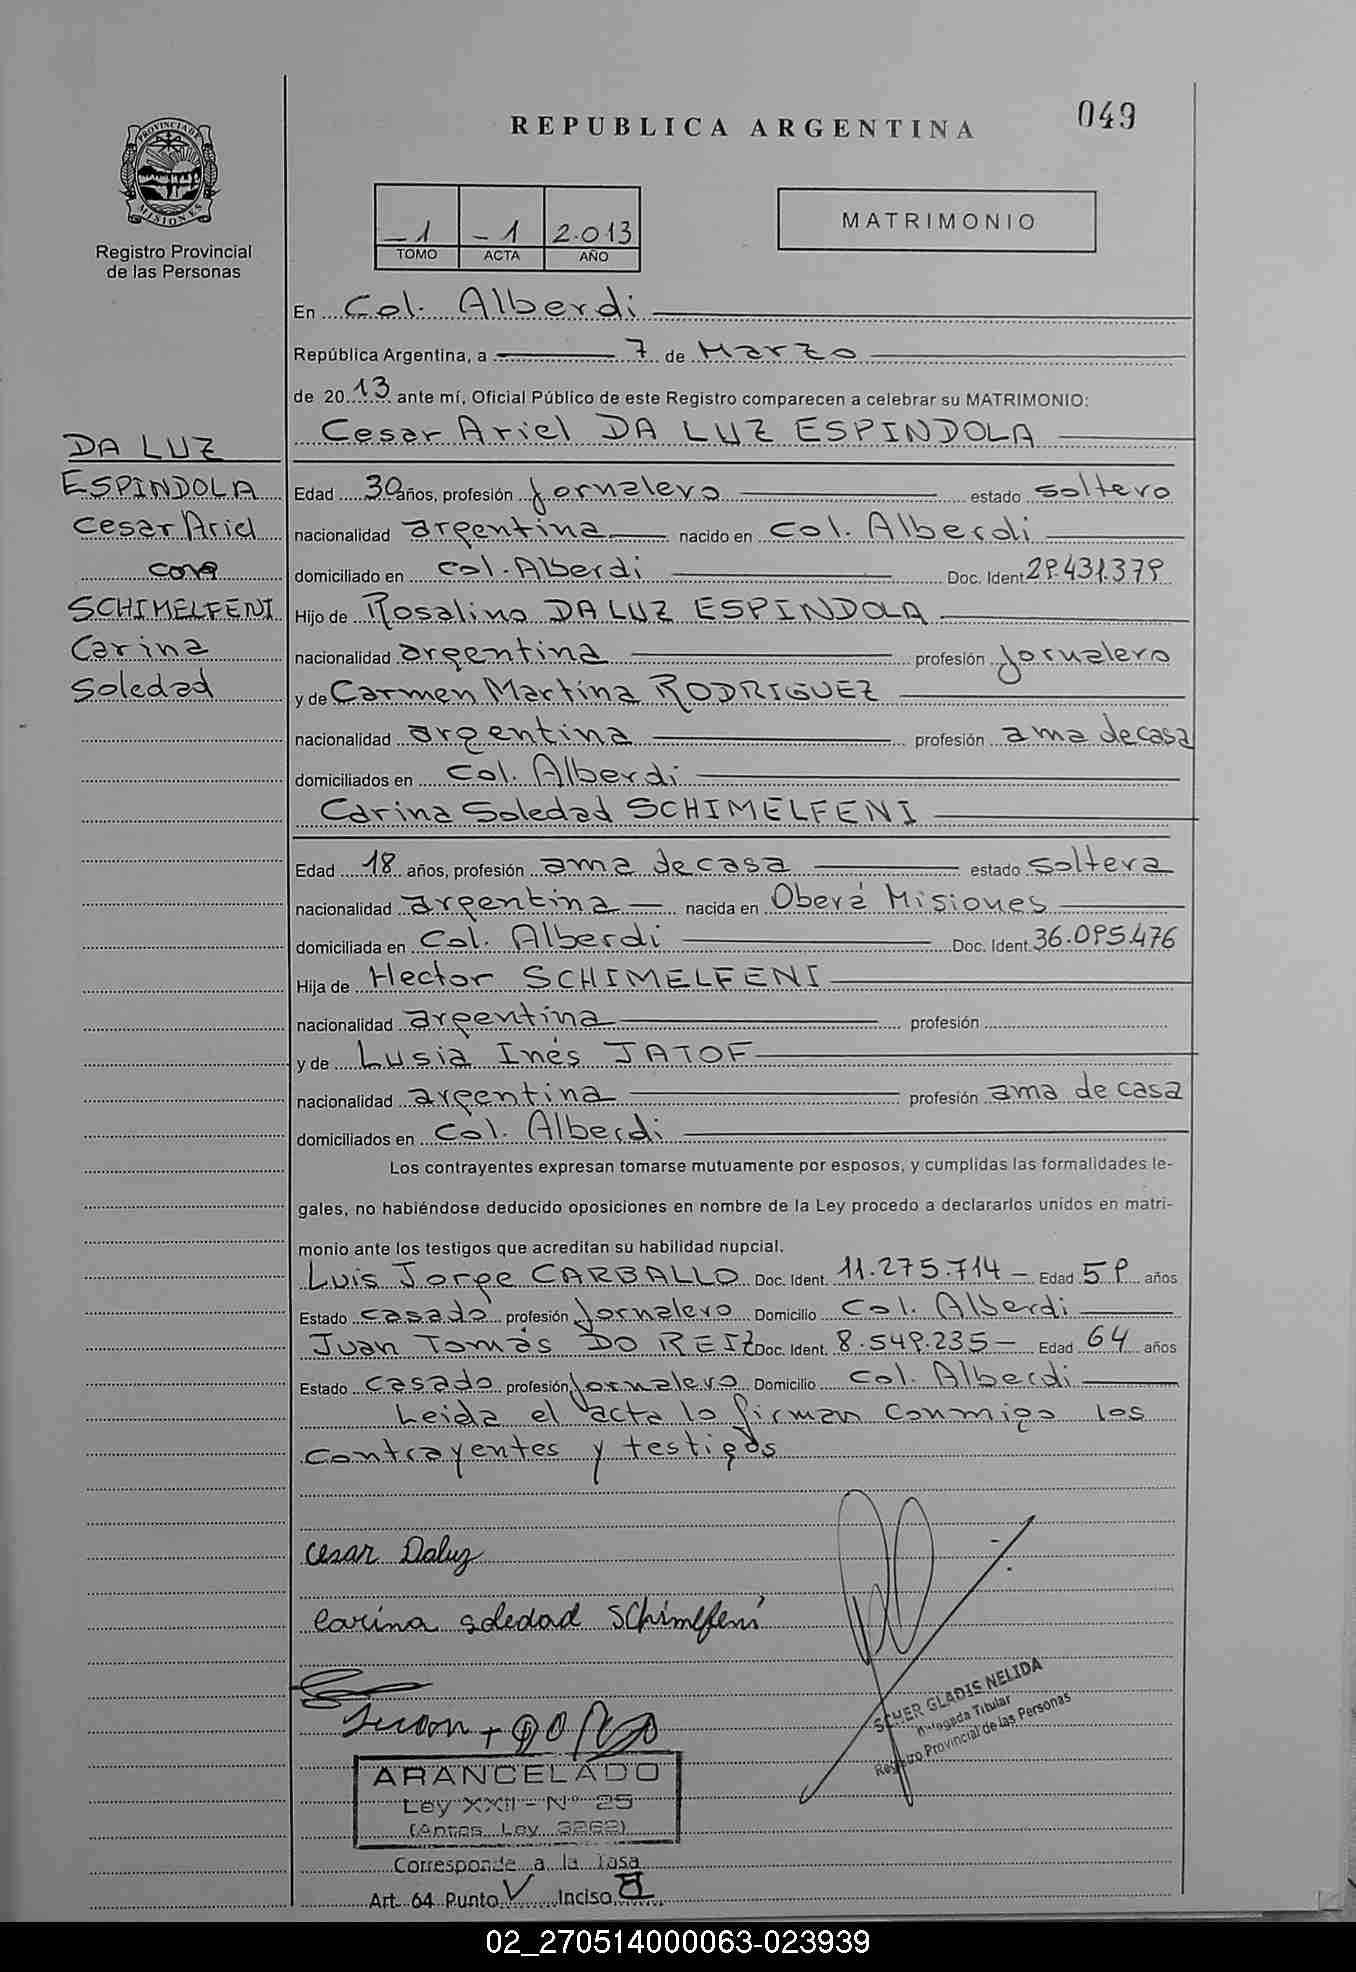 REPUBLICA ARGENTINA
049
PROVINCIA DE
MISIONES
Registro Provincial
de las Personas
1 1 2.013
TOMO ACTA AÑO
MATRIMONIO
En Col. Alberdi
República Argentina, a 7 de Marzo
de 2013 ante mí, Oficial Público de este Registro comparecen a celebrar su MATRIMONIO:
Cesar Ariel DA LUZ ESPINDOLA
DA LUZ
ESPINDOLA
Cesar Ariel
con
SCHIMELFENI
Carina
Soledad
Edad 30 años, profesión Jornalero estado soltero
nacionalidad argentina nacido en Col. Alberdi
domiciliado en Col. Alberdi Doc. Ident. 29.431.379
Hijo de Rosalino DA LUZ ESPINDOLA
nacionalidad argentina profesión Jornalero
y de Carmen Martina RODRIGUEZ
nacionalidad argentina profesión ama de casa
domiciliados en Col. Alberdi
Carina Soledad SCHIMELFENI
Edad 18 años, profesión ama de casa estado soltera
nacionalidad argentina nacida en Oberá Misiones
domiciliada en Col. Alberdi Doc. Ident. 36.095.476
Hija de Hector SCHIMELFENI
nacionalidad argentina profesión
y de Lusia Inés JATOF
nacionalidad argentina profesión ama de casa
domiciliados en Col. Alberdi
Los contrayentes expresan tomarse mutuamente por esposos, y cumplidas las formalidades le-
gales, no habiéndose deducido oposiciones en nombre de la Ley procedo a declararlos unidos en matri-
monio ante los testigos que acreditan su habilidad nupcial.
Luis Jorge CARBALLO Doc. Ident. 11.275.714 - Edad 59 años
Estado casado profesión Jornalero Domicilio Col. Alberdi
Juan Tomás DO REIZ Doc. Ident. 8.549.235 - Edad 64 años
Estado casado profesión Jornalero Domicilio Col. Alberdi
Leida el acta lo firman conmigo los
contrayentes y testigos
Cesar Daluz
Carina Soledad Schimelfeni
SCHER GLADIS NELIDA
Delegada Titular
Registro Provincial de las Personas
ARANCELADO
Ley XXII - Nº 25
(Antes Ley 3262)
Corresponde a la Tasa
Art. 64 Punto V Inciso II
02_270514000063-023939